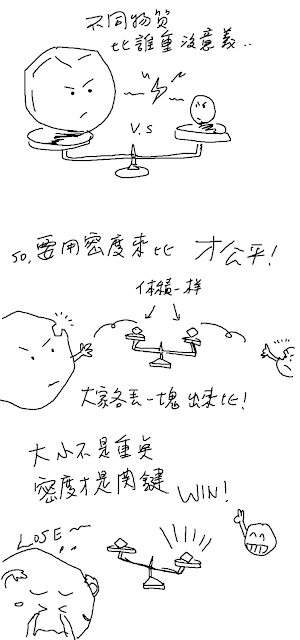 不同物質
比誰重沒意義..
V.S
so,要用密度來比 才公平!
体積一样
大家各丟一塊出來比!
大小不是重點
密度才是関鍵
WIN!
LOSE~